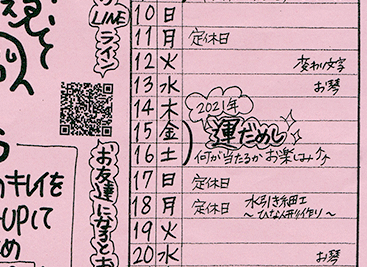 LINE
ライン
お友達になるとお
キレイを
UPして
10 日
11 月 定休日
12 火 変わり文字
13 水 お琴
14 木 2021年
15 金 運だめし
16 土 何が当たるか お楽しみ♪
17 日 定休日
18 月 定休日 水引き細工
～ひな人形作り～
19 火
20 水 お琴